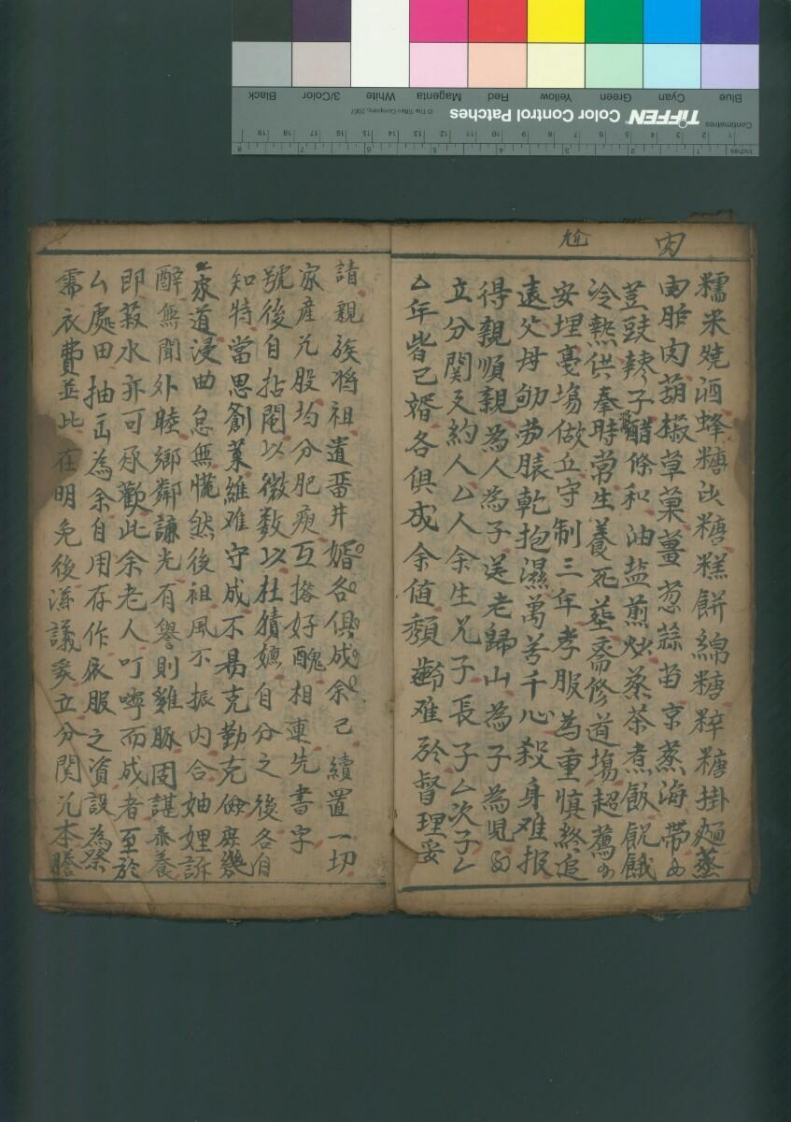 Blue Cyan Green Yellow Red Magenta White 3/Color Black
TIFFEN Color Control Patches
© The Tiffen Company, 2007
Centimetres
Inches
肉
尬
糯米燒酒蜂糖 糖糕餅綿糖粹糖掛麵蒸
肉 肉葫椒草菓薑葱蒜苗京蒸海帶
荳豉辣子醋條和油盐煎炒蒸茶煮飯飢餓
冷熱供奉時常生養死葬斋修道塲超薦
安埋 塲做丘守制三年孝服為重慎終追
遠父母劬劳 乾抱濕萬苦千心殺身难报
得親順親為人為子送老歸山為子為
立分關文約人厶人余生兄子長子厶次子厶
厶年皆已婚各俱成余值頹齡难於督理妥
請親族將祖遺畨井婚各俱成余已續置一切
家産 股均分肥瘐互搭好醜相連先書字
號後自拈鬮以徵数以杜 自分之後各自
知特當思創業維难守成不易克勤克儉
家道浸曲怠無 然後祖風不振内合妯娌訴
醉無聞外睦鄉鄰謙光有譽則雞豚固謀 養
即菽水亦可承歡此余老人叮嚀而成者至於
厶處田抽出為余自用存作衣服之資設為祭
需衣費並此在明免後 議爰立分関 本